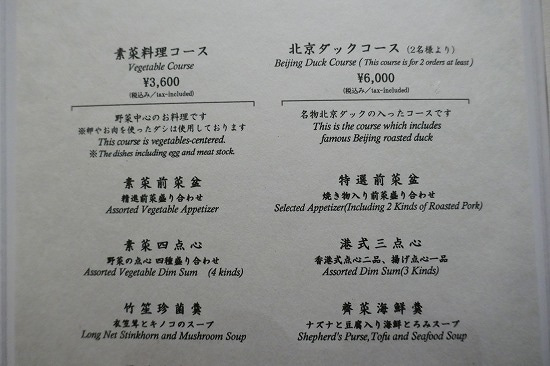 素菜料理コース
Vegetable Course
¥3,600
(税込み／tax-included)
野菜中心のお料理です
※卵やお肉を使ったダシは使用しております
This course is vegetables-centered.
※The dishes including egg and meat stock.
素菜前菜盆
精進前菜盛り合わせ
Assorted Vegetable Appetizer
素菜四点心
野菜の点心 四種盛り合わせ
Assorted Vegetable Dim Sum (4 kinds)
竹笙珍菌羹
衣笠茸とキノコのスープ
Long Net Stinkhorn and Mushroom Soup
北京ダックコース (2名様より)
Beijing Duck Course ( This course is for 2 orders at least )
¥6,000
(税込み／tax-included)
名物北京ダックの入ったコースです
This is the course which includes
famous Beijing roasted duck
特選前菜盆
焼き物入り前菜盛り合わせ
Selected Appetizer(Including 2 Kinds of Roasted Pork)
港式三点心
香港式点心二品、揚げ点心一品
Assorted Dim Sum(3 Kinds)
薺菜海鮮羹
ナズナと豆腐入り海鮮とろみスープ
Shepherd's Purse,Tofu and Seafood Soup